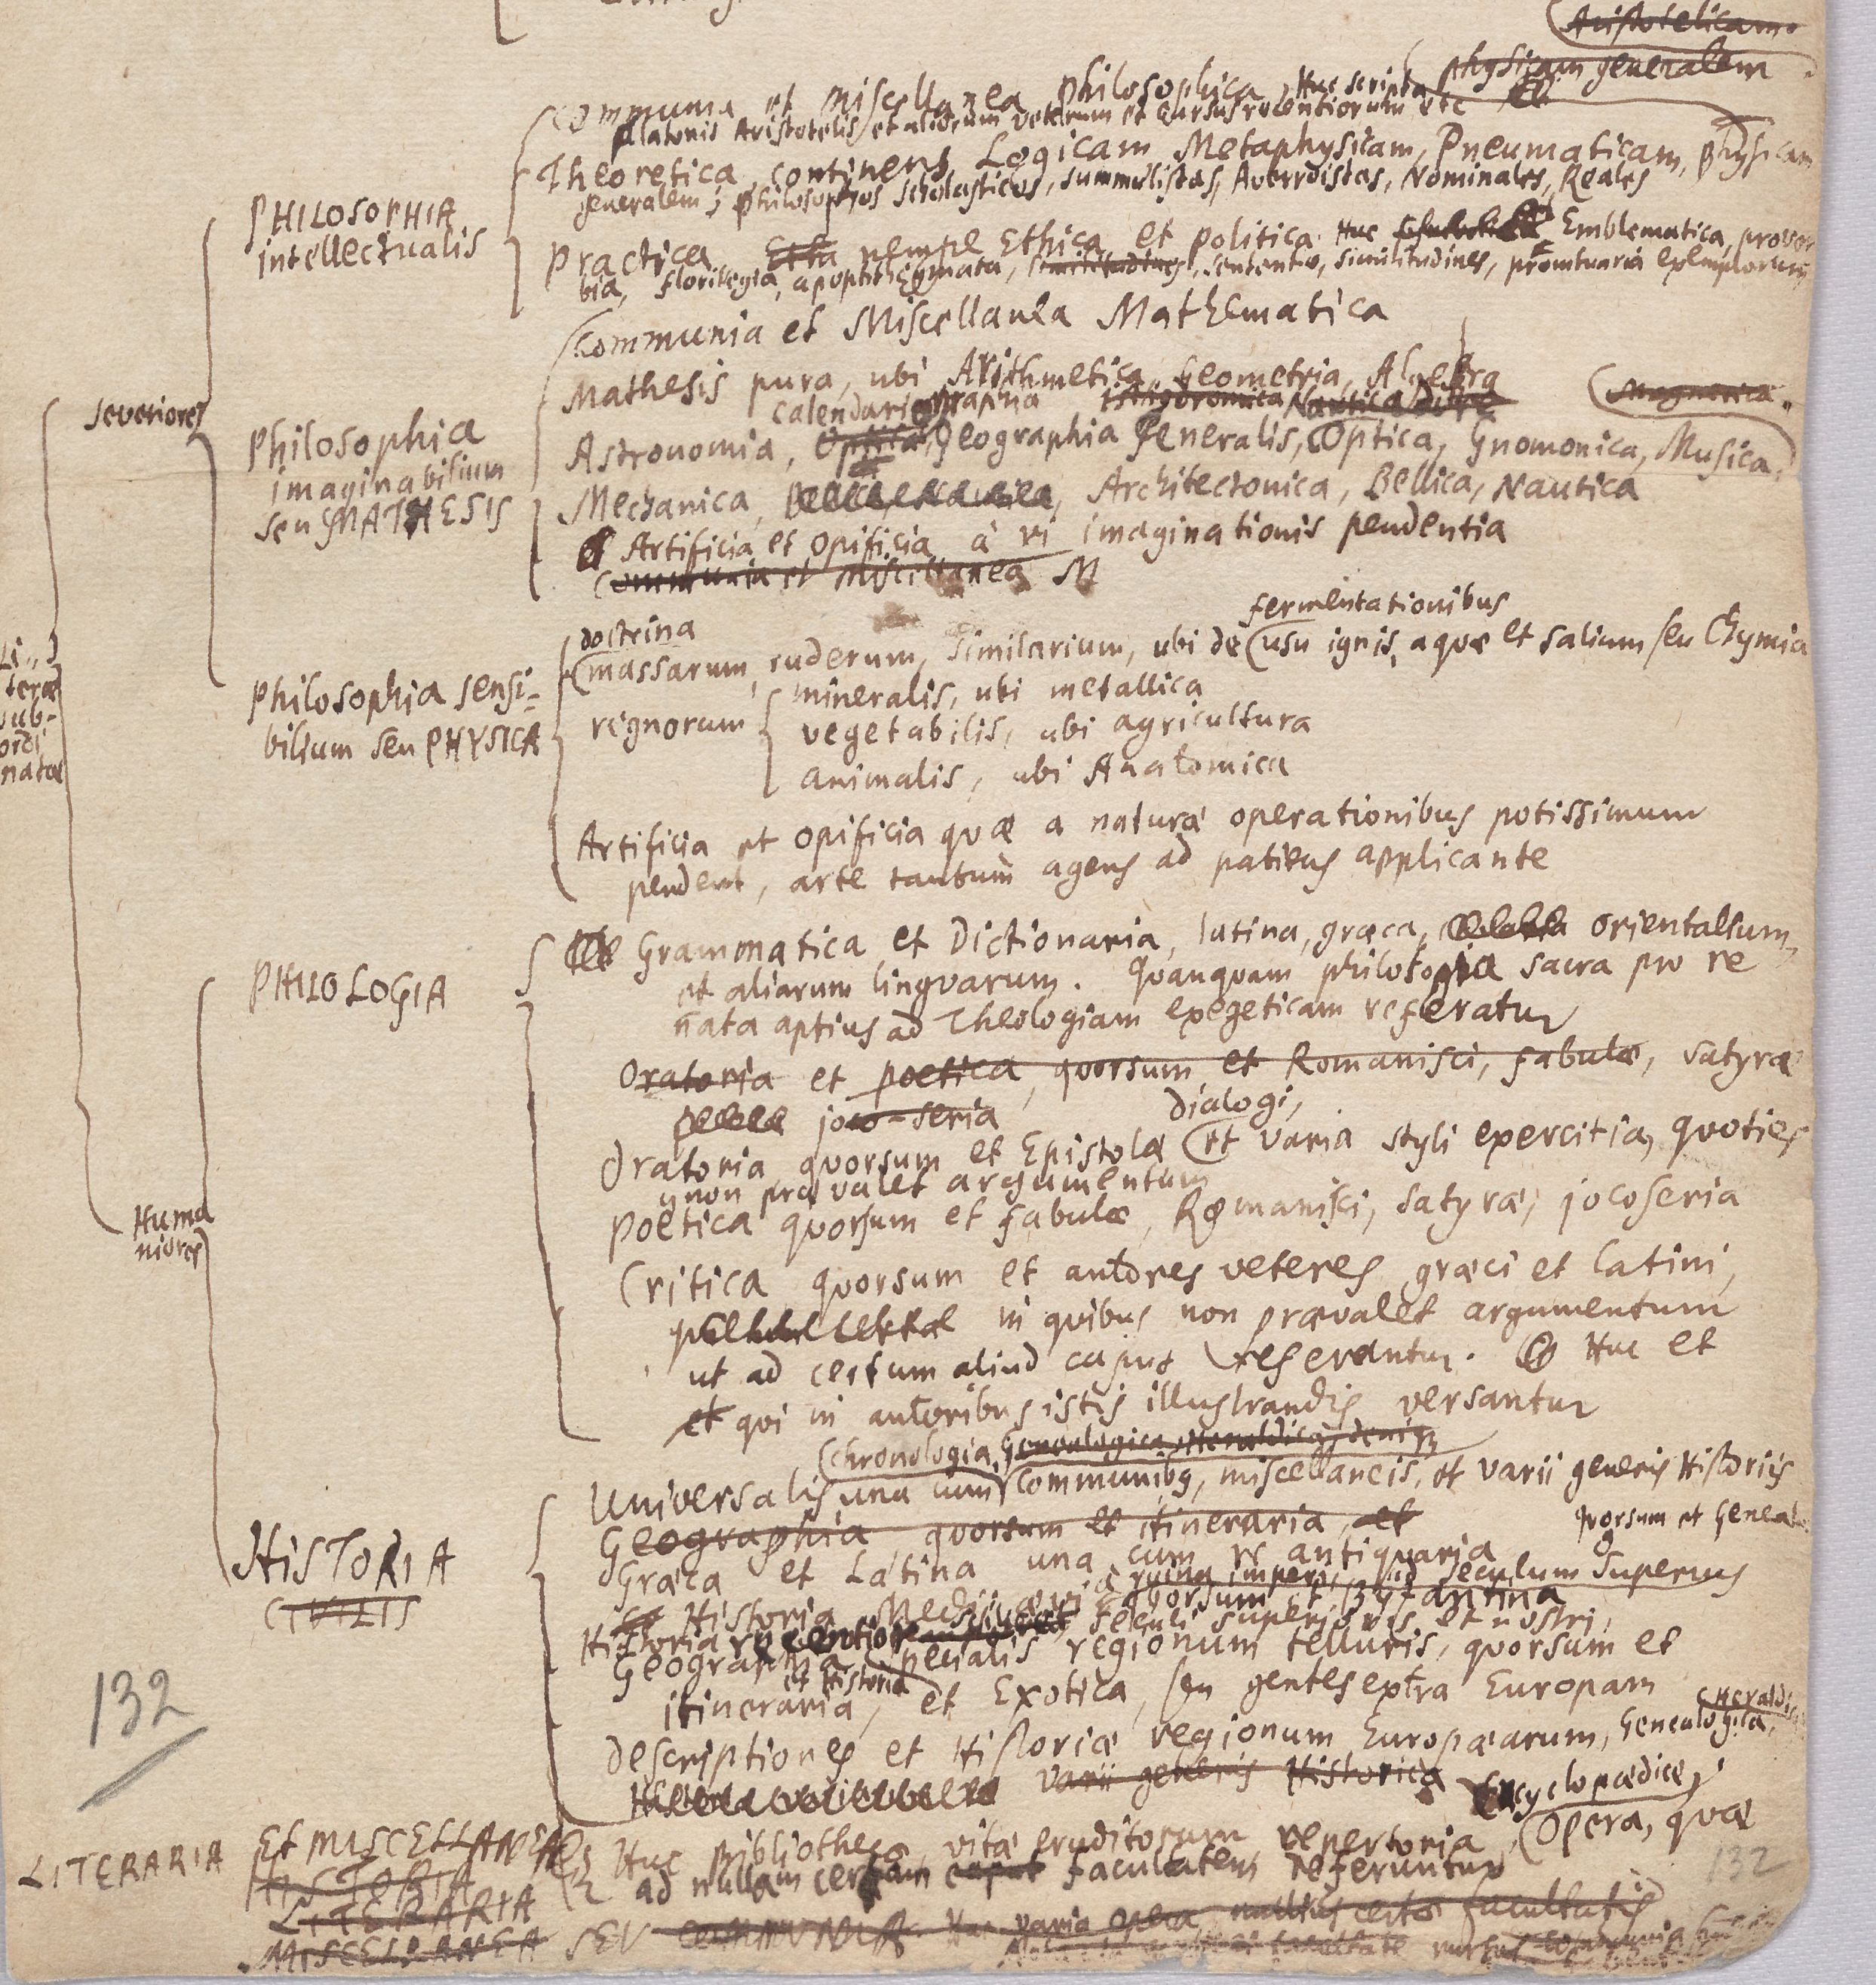 Aristotelicam
physicam generalem
Communia et Miscellanea philosophica, Huc scripta
Platonis Aristotelis et aliorum veterum et Cursus recentiorum etc
Theoretica, continens Logicam Metaphysicam, Pneumaticam, physicam
generalem; philosophos Scholasticos, Summulistas, Averroistas, Nominales, Reales
PHILOSOPHIA
intellectualis
Practica Etha nempe Ethica et politica. Huc Emblematica, prover
bia, florilegia, apophthegmata, similitudines, sententiae, similitudines, promtuaria exemplorum
Communia et Miscellanea Mathematica
Mathesis pura, ubi Arithmetica, Geometria, Algebra
Severiores
calendariographia Nautica Magnetica
Astronomia, Optica Geographia Generalis, Optica, Gnomonica, Musica.
Philosophia
imaginabilium
seu MATHESIS
Mechanica, Architectonica, Bellica, Nautica
Artificia et Opificia à vi imaginationis pendentia
Communia et Miscellanea M
doctrina
fermentationibus
massarum, ruderum, similarium, ubi de usu ignis, aquae et salium seu Chymia
Li-
terae
sub-
ordi
natae
Philosophia sensi-
bilium seu PHYSICA
regnorum
mineralis, ubi metallica
vegetabilis, ubi agricultura
animalis, ubi Anatomica
Artificia et opificia quae a naturae operationibus potissimum
pendent, arte tantum agens ad patiens applicante
PHILOLOGIA
Grammatica et Dictionaria, latina, graeca, orientalium,
et aliarum lingvarum. Quanquam philologia sacra pro re
nata aptius ad Theologiam exegeticam referatur
Oratoria et poetica, quorsum et Romanisci, fabulae, satyrae
joco-seria
dialogi,
Oratoria quorsum et Epistolae et varia styli exercitia, quoties
non praevalet argumentum
Huma
niores
Poëtica quorsum et fabulae, Romanisci, satyrae, jocoseria
Critica quorsum et autores veteres graeci et latini,
in quibus non praevalet argumentum
ut ad certum aliud caput referantur. Huc et
et qui in autoribus istis illustrandis versantur
chronologia, Genealogica, Heraldica, deniq
Universalis una cum communibq, miscellaneis, et varii generis Historiis
Geographia quorsum et itineraria, et
quorsum et Geneal
HISTORIA
CIVILIS
Graeca et Latina una cum re antiquaria
ruina imperii ad seculum superius
Historia Medii aevi quorsum et Byzantina
Historia recentior seculi superioris et nostri,
Geographia specialis regionum telluris, quorsum et
et Historia
itineraria, et Exotica, seu gentes extra Europam
Heraldi
descriptiones et Historiae regionum Europaearum, Genealogica,
varii generis Historica
132
Encyclopaedica,
LITERARIA
Et MISCELLANEA
Huc Bibliotheca, vitae eruditorum repertoria, Opera, quae
ad nullam certam caput facultatem referuntur
HISTORIA
LITERARIA
MISCELLANEA SEU COMMUNIA. Huc varia opera nullius certae facultatis
132